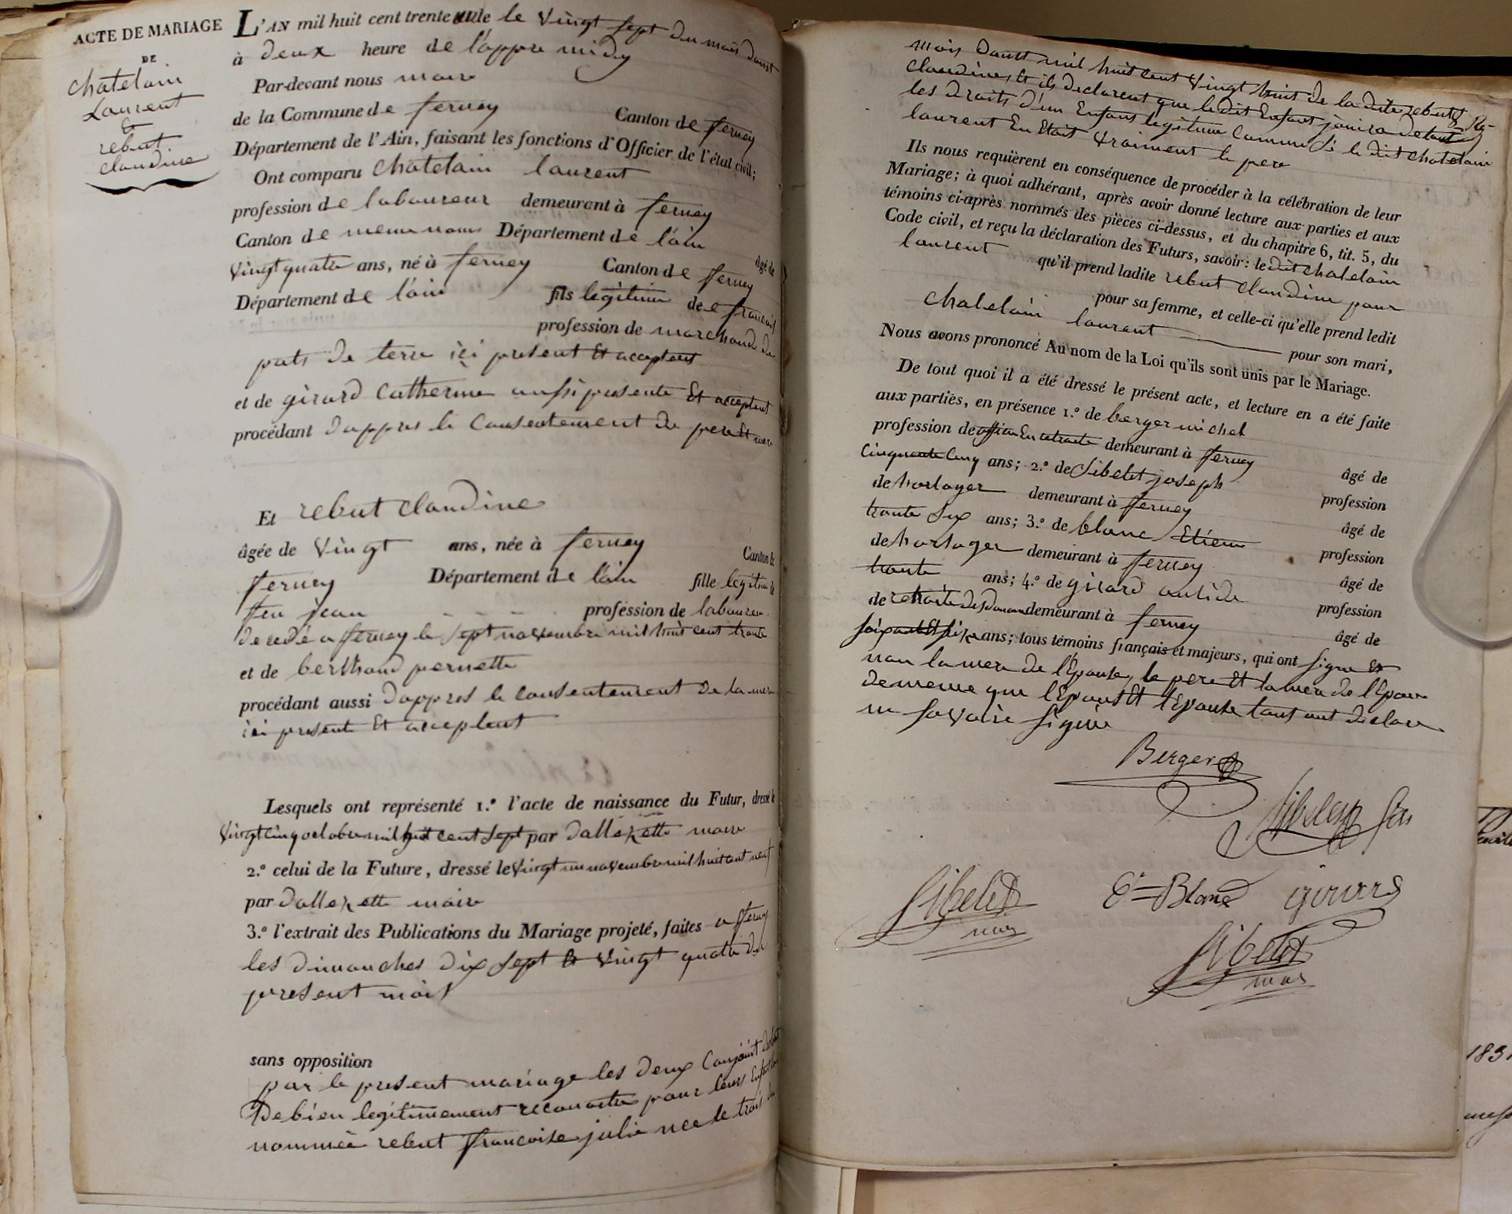 ACTE DE MARIAGE
DE
chatelain
Laurent
&
rebut
claudine
L'AN mil huit cent trente une le vingt sept du mois daout
à deux heure de l'appre midy
Par-devant nous maire
de la Commune de ferney Canton de ferney
Département de l'Ain, faisant les fonctions d'Officier de l'état civil;
Ont comparu chatelain laurent
profession de laboureur demeurant à ferney
Canton de meme nom Département de l'ain âgé de
vingt quatre ans, né à ferney Canton de ferney
Département de l'ain fils legitime de francois
profession de marchand de
pats de terre ici present Et acceptent
et de girard Catherine aussi presente Et acceptent
procédant dappres le Consentement de pere Et mere
Et rebut claudine
âgée de vingt ans, née à ferney Canton de
ferney Département de l'ain fille legitime de
feu jean profession de laboureur
decede a ferney le sept novembre mil huit cent trente
et de berthand pernette
procédant aussi dappres le consentement de la mere
ici presente Et acceptent
Lesquels ont représenté 1.º l'acte de naissance du Futur, dressé le
vingt cinq octobre mil huit cent sept par dallezette maire
2.º celui de la Future, dressé le vingt un novembre mil huit cent neuf
par dallezette maire
3.º l'extrait des Publications du Mariage projeté, faites a ferney
les dimanches dix sept & vingt quatre du
present mois
sans opposition
par le present mariage les deux Conjoint
de bien legitimement reconnaitre pour leurs Enfant
nommée rebut francoise julie nee le trois du
mois daout mil huit cent vingt huit de la dite rebut
claudine, Et ils declarent que le dit Enfant jouira de tout
les droits d'un Enfant legitime Comme si le dit chatelain
laurent En Etait vraiment le pere
Ils nous requièrent en conséquence de procéder à la célébration de leur
Mariage; à quoi adhérant, après avoir donné lecture aux parties et aux
témoins ci-après nommés des pièces ci-dessus, et du chapitre 6, tit. 5, du
Code civil, et reçu la déclaration des Futurs, savoir: le dit chatelain
laurent qu'il prend ladite rebut claudine pour
pour sa femme, et celle-ci qu'elle prend ledit
chatelain laurent pour son mari,
Nous avons prononcé Au nom de la Loi qu'ils sont unis par le Mariage.
De tout quoi il a été dressé le présent acte, et lecture en a été faite
aux parties, en présence 1.º de berger michel
profession de officier En retraite demeurant à ferney âgé de
cinquante cinq ans; 2.º de Sibelet joseph profession
de horloger demeurant à ferney âgé de
trante six ans; 3.º de blanc Etienne profession
de horloger demeurant à ferney âgé de
trante ans; 4.º de girard antide profession
de retraite des douanes demeurant à ferney âgé de
soixante Et six ans; tous témoins français et majeurs, qui ont signé Et
non la mere de l'Epouse, le pere Et la mere de l'Epoux
de meme que l'Epoux Et l'Epouse tant ont declare
ne savoir signer
Berger
Sibelet fils
Sibelet
mair
Ee Blanc
girard
Sibelet
mair
1831